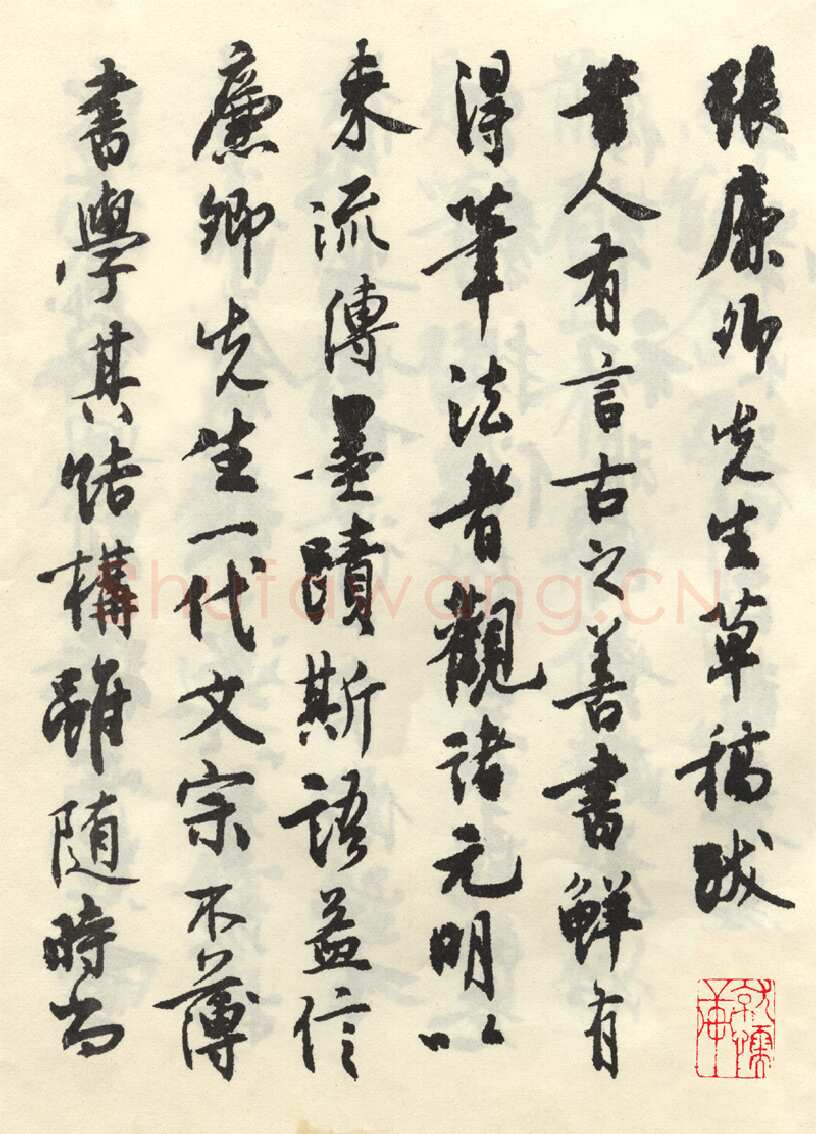 張廉卿先生草稿跋
昔人有言古之善書鮮有
得筆法者觀諸元明以
来流傳墨蹟斯語益信
廉卿先生一代文宗不薄
書學其結構雖随時尚
Shufawang.CN